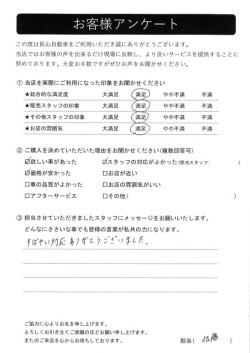 お客様アンケート
この度は長山自動車をご利用いただき誠にありがとうございます。
当店ではお客様の声を出来るだけ現場に反映し、より良いサービスを提供することに
努めております。大変お手数ですがぜひお声をお聞かせください。
① 当店を実際にご利用になった印象をお聞かせください
★総合的な満足度 大満足 満足 やや不満 不満
★販売スタッフの印象 大満足 満足 やや不満 不満
★その他スタッフの印象 大満足 満足 やや不満 不満
★お店の雰囲気 大満足 満足 やや不満 不満
② ご購入を決めていただいた理由をお聞かせください(複数回答可)
☑欲しい車があった ☑スタッフの対応がよかった(担当スタッフ: )
☑価格が安かった □お店が近い
□車の品質がよかった □お店の雰囲気がいい
□アフターサービス □その他( )
③ 担当させていただきましたスタッフにメッセージをお願いいたします。
どんなにささいな事でも皆様の言葉が私共の力になります。
すばやい対応ありがとうございました。
ご協力に心よりお礼を申し上げます。
よろしくお引き立てご愛顧のほどお願い申し上げます。
またのご来店を心からお待ちしております。
担当( 佐藤 )